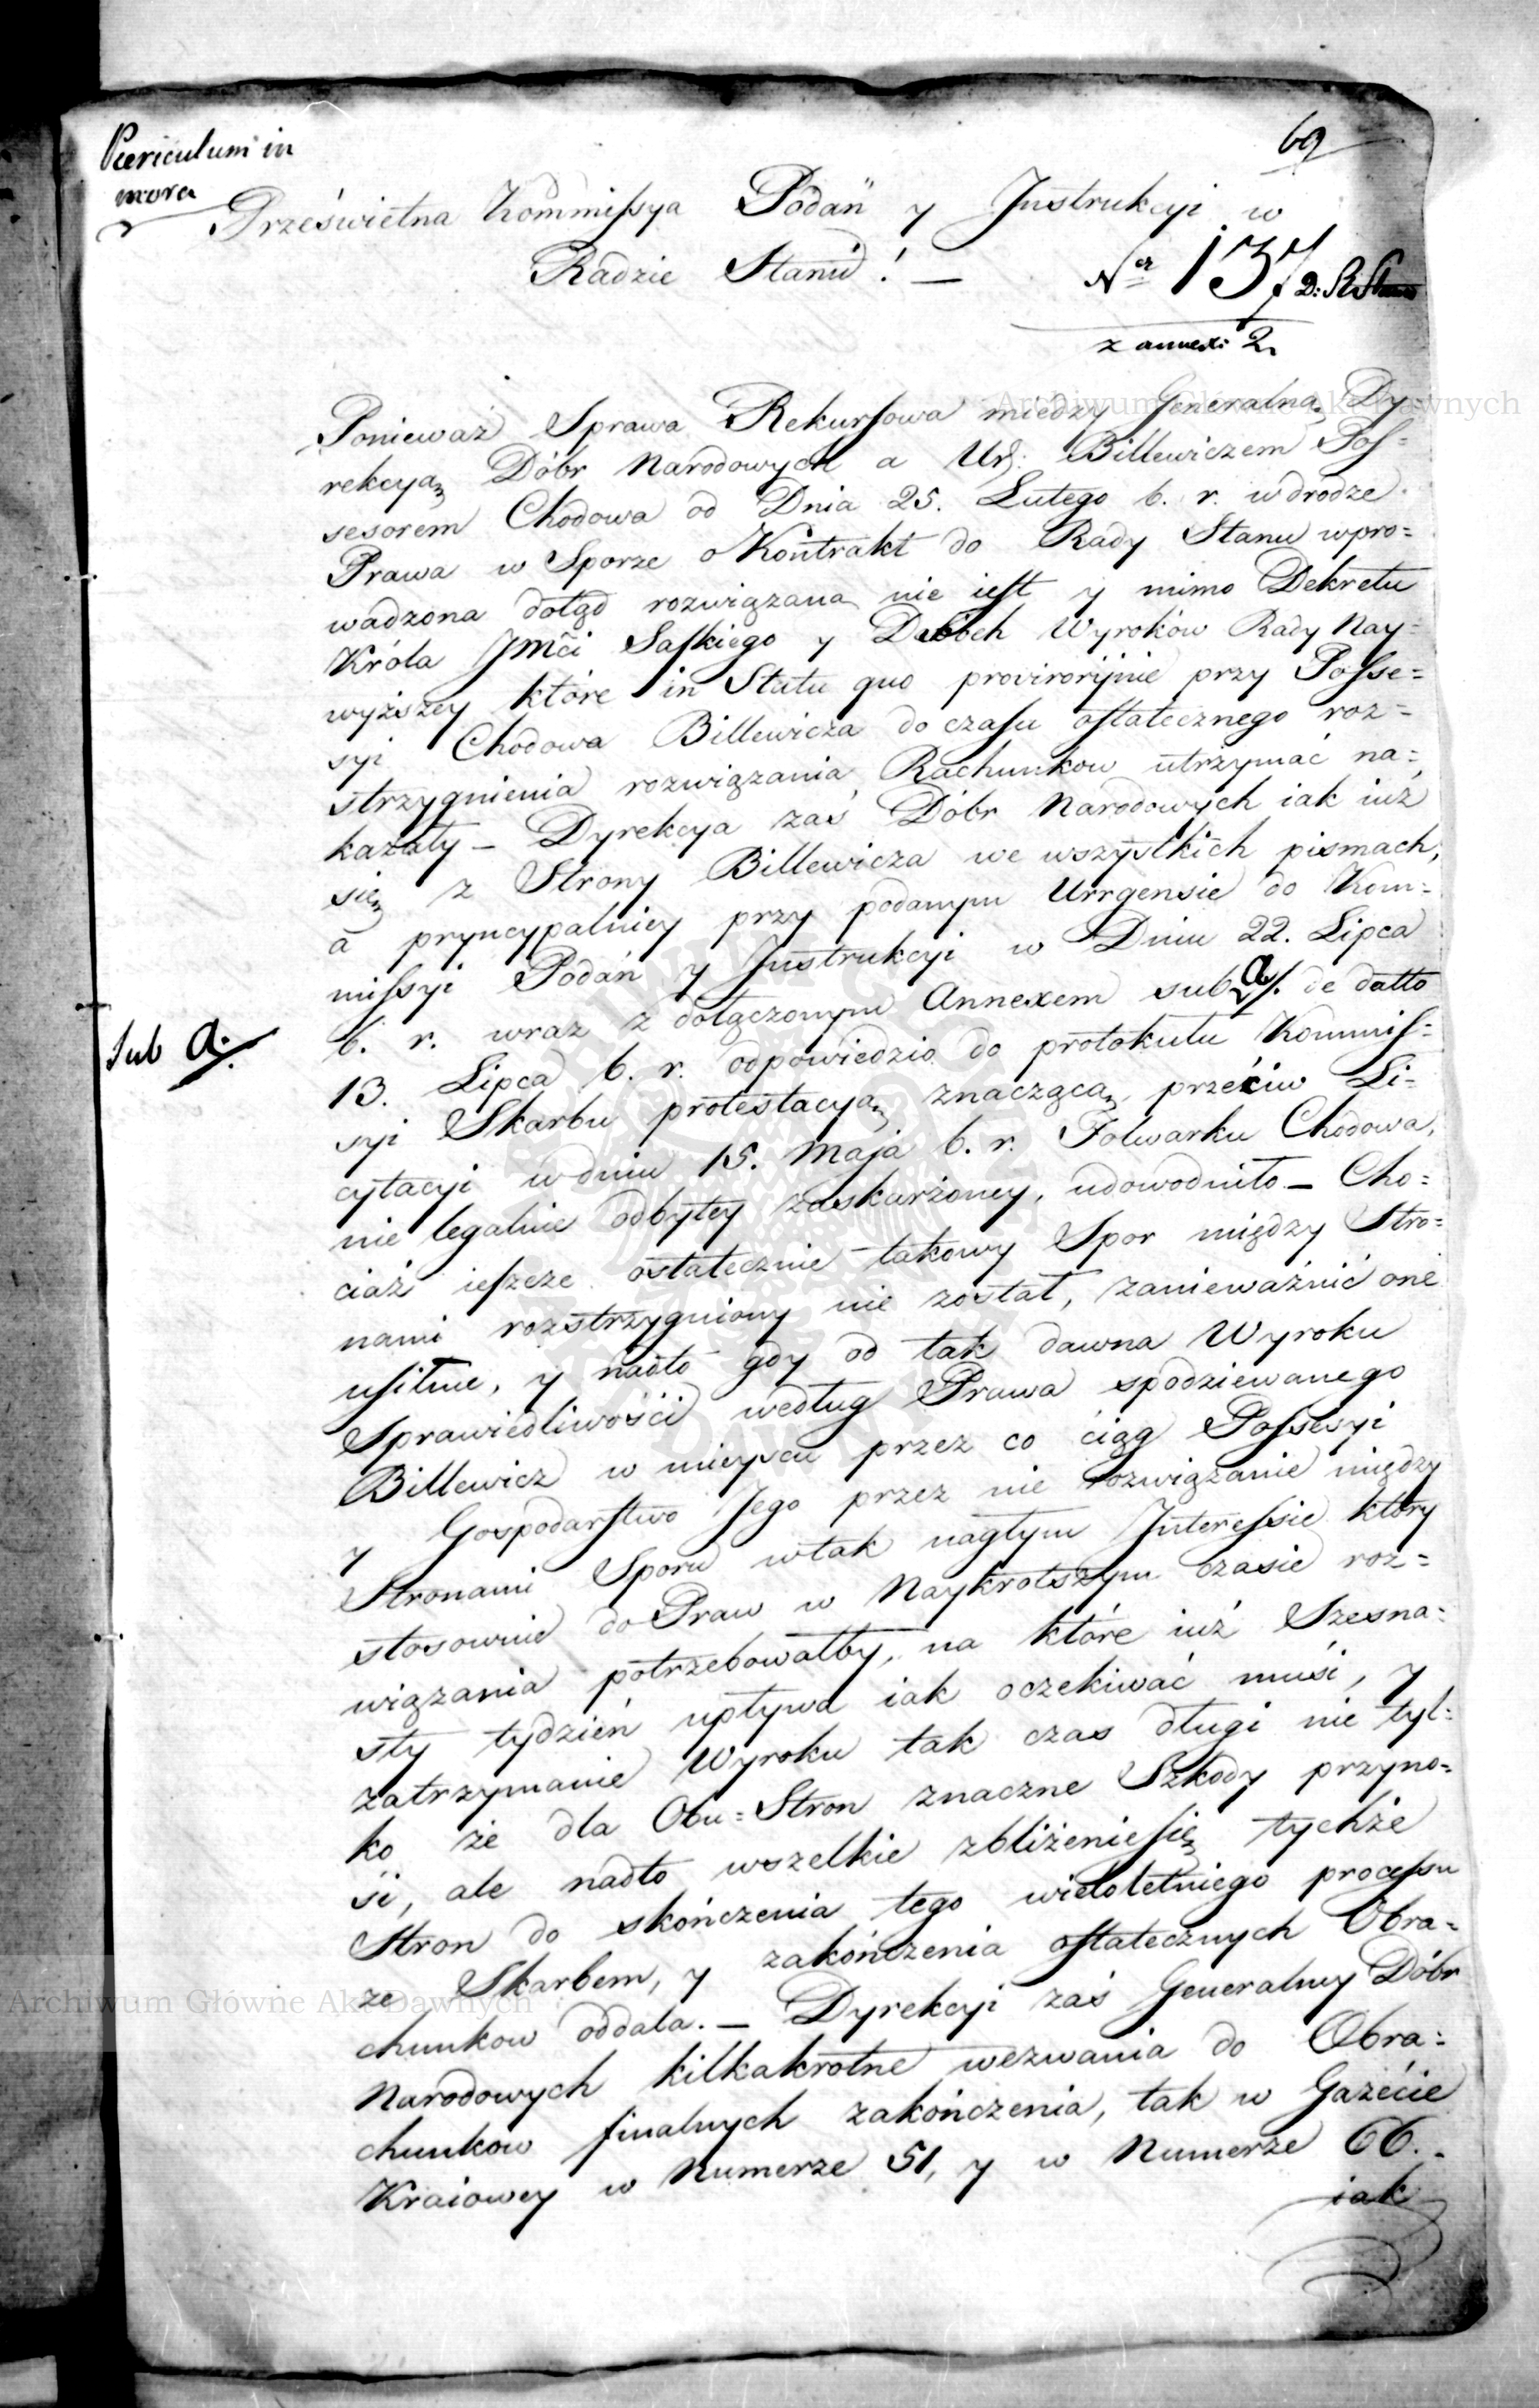 69
Pericul­um in
mora
Prześwietna Kommissya Podań y Instrukcyi w
Radzie Stanu! —
Ner 137 D: R. Stanu
z annexi 2.
Ponieważ Sprawa Rekursowa między Generalną Dy
rekcyą Dóbr Narodowych a Ur: Billewiczem Pos=
sesorem Chodowa od Dnia 25. Lutego b. r. w drodze
Prawa w Sporze o Kontrakt do Rady Stanu wpro=
wadzona dotąd rozwiązana nie iest y mimo Dekretu
Króla Jmći Saskiego y Dwóch Wyroków Rady Nay=
wyższey które in Statu quo provirorijnie przy Posse=
syi Chodowa Billewicza do czasu ostatecznego roz=
strzygnienia rozwiązania Rachunkow utrzymać na=
kazały — Dyrekcya zaś Dóbr Narodowych iak iuż
się z Strony Billewicza we wszystkich pismach,
a pryncypalniey przy podanym Urrgensie do Kom=
missyi Podań y Instrukcyi w Dniu 22. Lipca
b. r. wraz z dołączonym Annexem sub a/. de datto
Sub a.
13. Lipca b. r. odpowiedzio do protokułu Kommis=
syi Skarbu protestacyą znaczącą przeciw Li=
cytacyi w dniu 15. Maja b. r. Folwarku Chodowa,
nie legalnie odbytey zaskarżoney, udowodniło — Cho=
ciaż ieszcze ostatecznie takowy Spor między Stro=
nami rozstrzygniony nie został, zanieważnić one
usilnie, y nadto gdy od tak dawna Wyroku
Sprawiedliwości według Prawa spodziewanego
Billewicz w mieyscu przez co ciąg Possesyi
y Gospodarstwo Jego przez nie rozwiązanie między
Stronami Sporu w tak nagłym Interessie który
stosownie do Praw w Naykrotszym czasie roz=
wiązania potrzebowałby, na które iuż Szesna=
sty tydzień upływa iak oczekiwać musi, y
zatrzymanie Wyroku tak czas długi nie tyl=
ko że dla Obu=Stron znaczne Szkody przyno=
si, ale nadto wszelkie zbliżenie się tychże
Stron do skończenia tego wieloletniego processu
ze Skarbem, y zakończenia ostatecznych Obra=
chunkow oddala. — Dyrekcyi zaś Generalney Dóbr
Narodowych kilkakrotne wezwania do Obra=
chunkow finalnych zakończenia, tak w Gazécie
Kraiowey w Numerze 51, y w Numerze 66.
iak
Archiwum Główne Akt Dawnych
Archiwum Główne Akt Dawnych